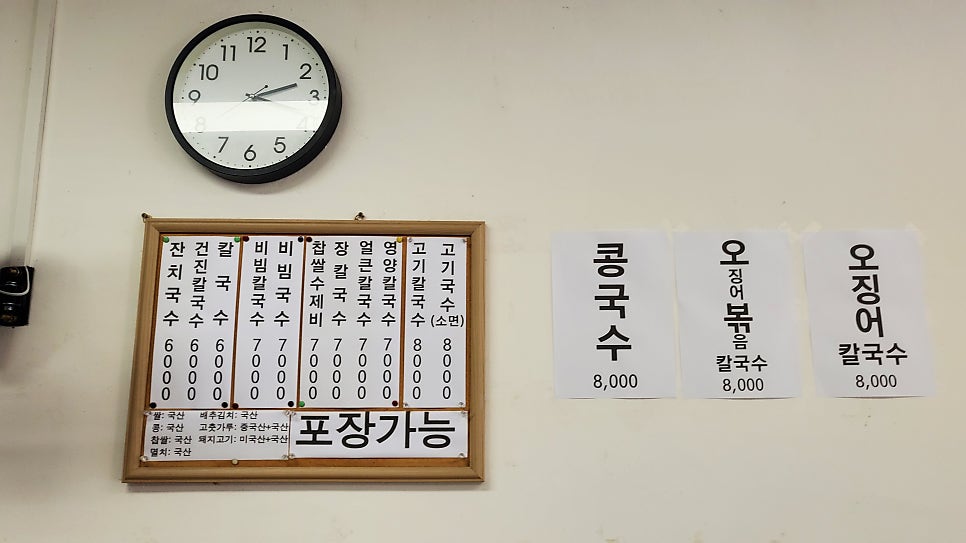 12
1
2
3
4
5
6
7
8
9
10
11
잔치국수 6000
건진칼국수 6000
칼국수 6000
비빔칼국수 7000
비빔국수 7000
찹쌀수제비 7000
장칼국수 7000
얼큰칼국수 7000
영양칼국수 7000
고기칼국수 8000
고기국수(소면) 8000
쌀: 국산 배추김치: 국산
콩: 국산 고춧가루: 중국산+국산
찹쌀: 국산 돼지고기: 미국산+국산
멸치: 국산
포장가능
콩국수
8,000
오징어볶음
칼국수
8,000
오징어
칼국수
8,000